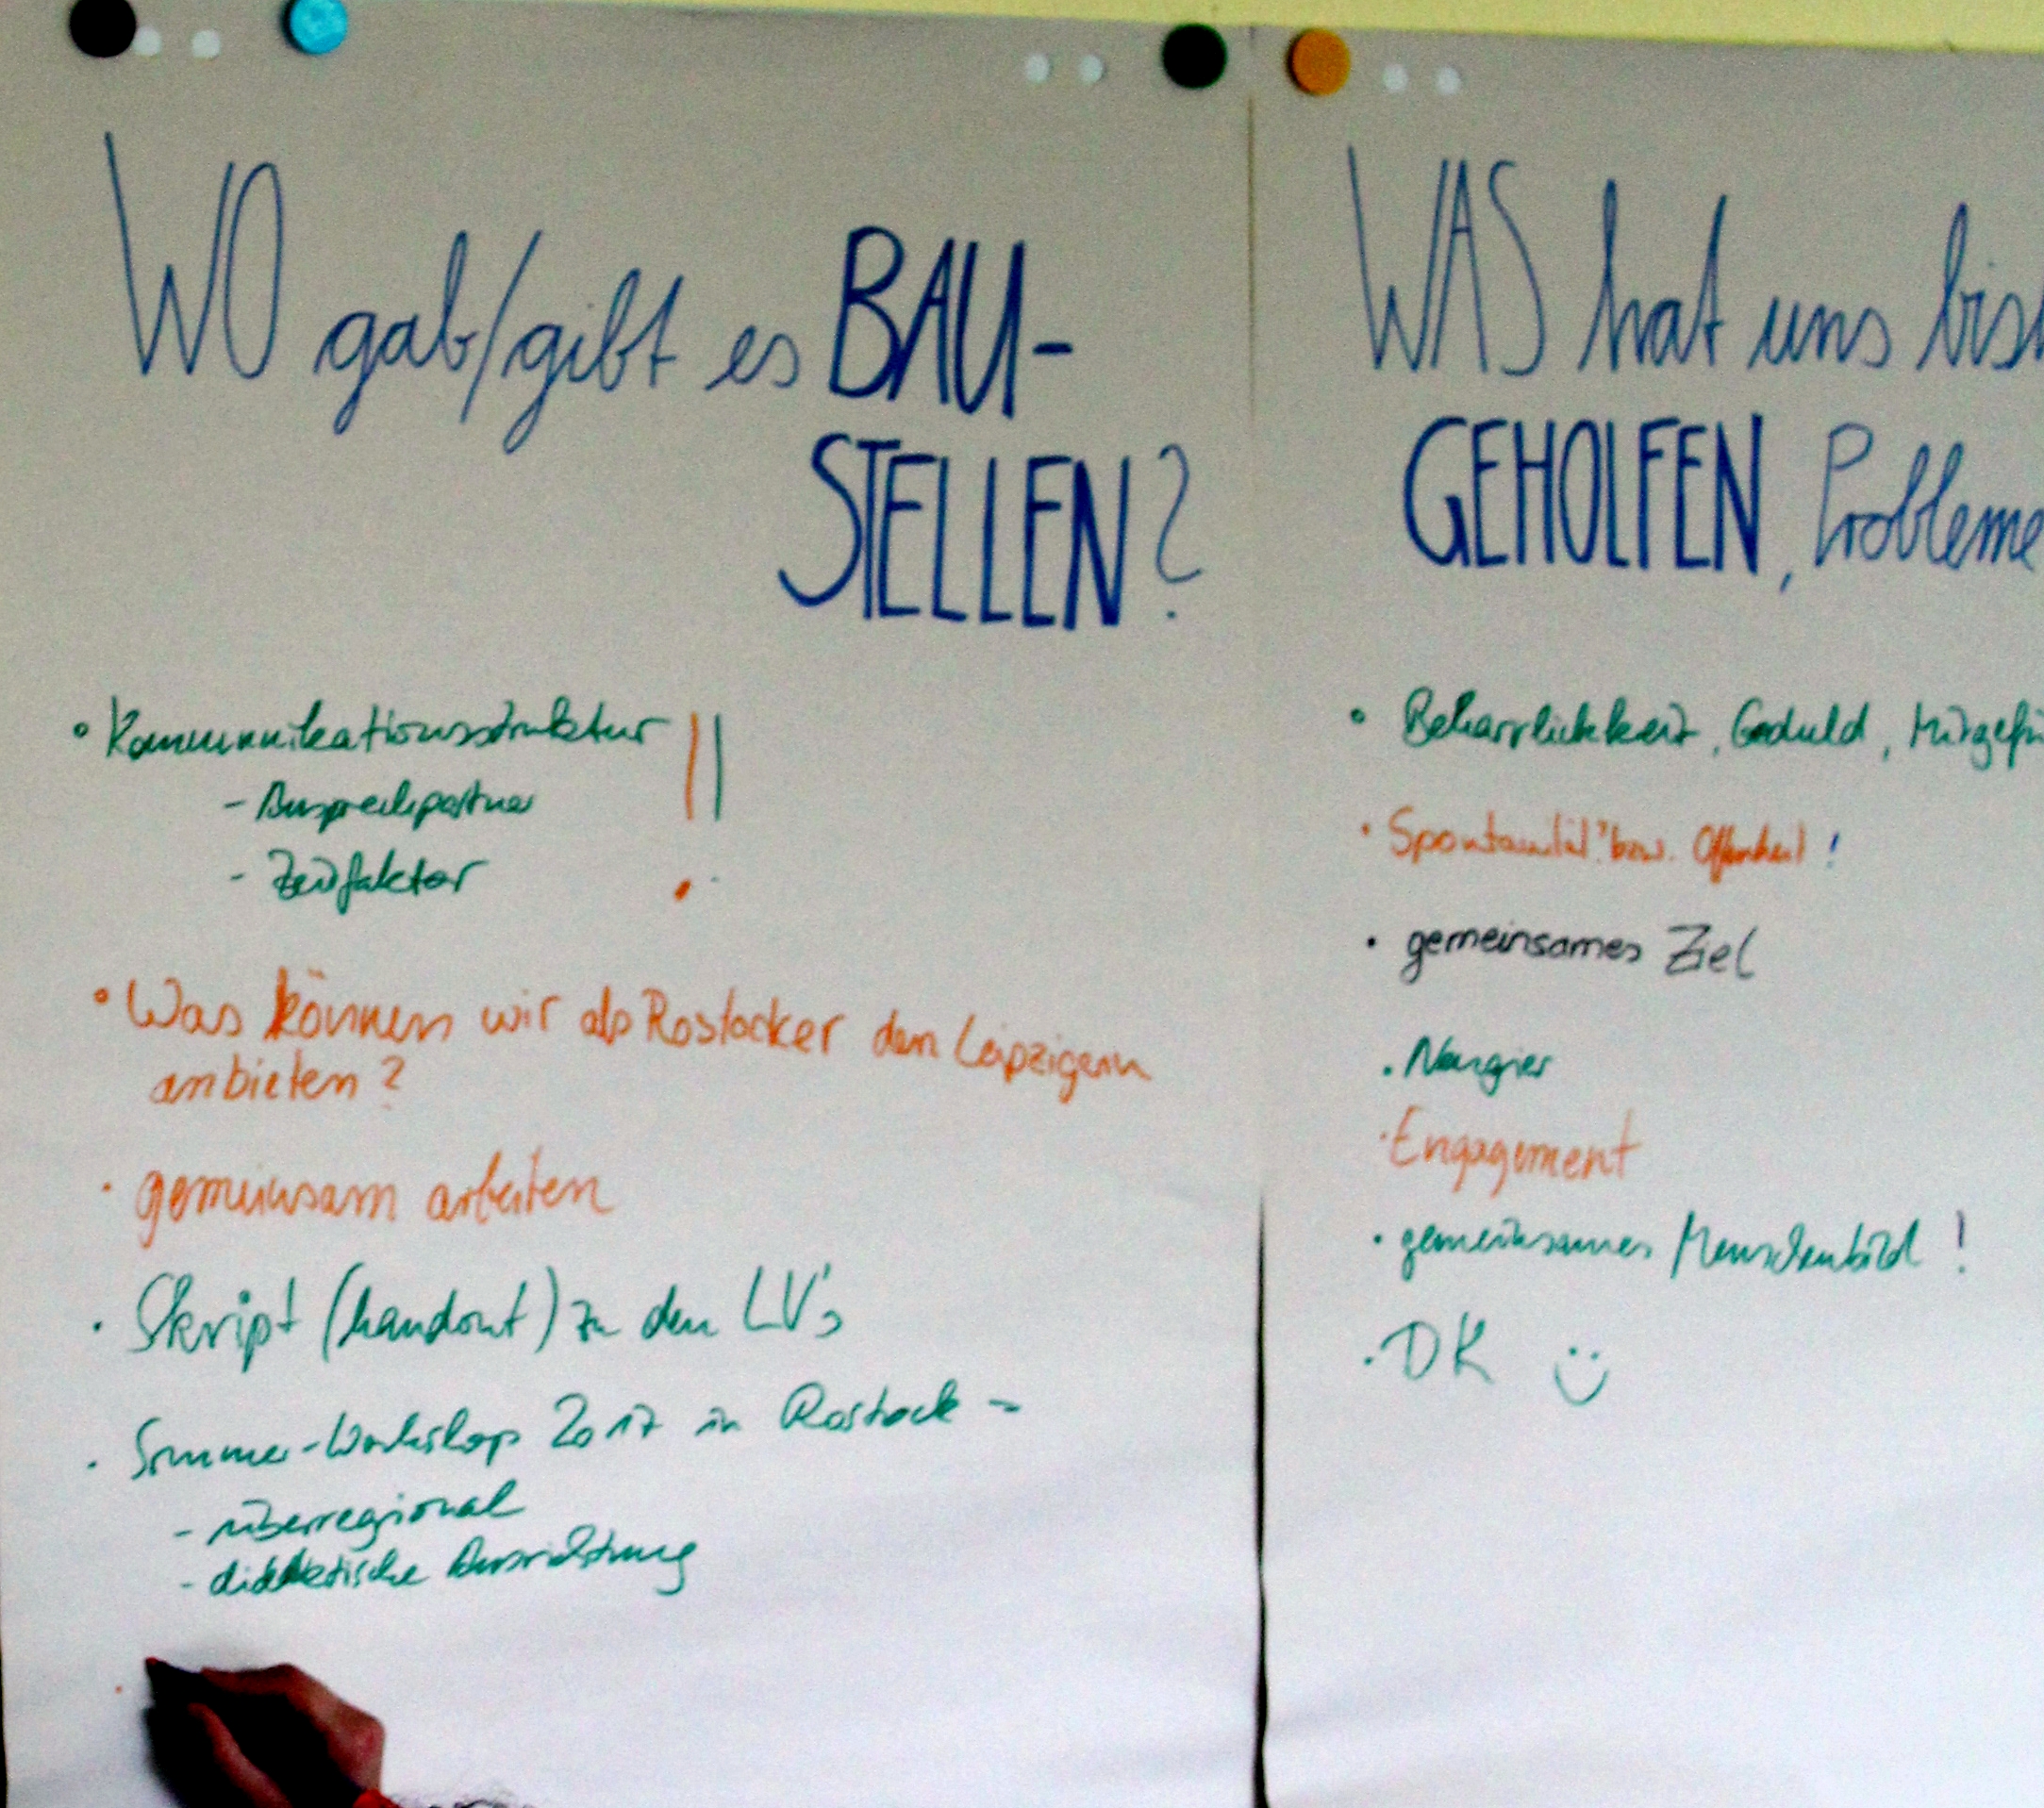 WO gab/gibt es BAU-
STELLEN?
• Kommunikationsstruktur !!
- Ansprechpartner
- Zeitfaktor
• Was können wir als Rostocker den Leipzigern
anbieten?
• gemeinsam arbeiten
• Skript (handout) zu den LV's
• Sommer-Workshop 2017 in Rostock -
- überregional
- didaktische Ausrichtung
WAS hat uns bish
GEHOLFEN, Probleme
• Beharrlichkeit, Geduld, Mitgefü
• Spontanität? bzw. Offenheit!
• gemeinsames Ziel
• Neugier
• Engagement
• gemeinsames Menschenbild!
• DK